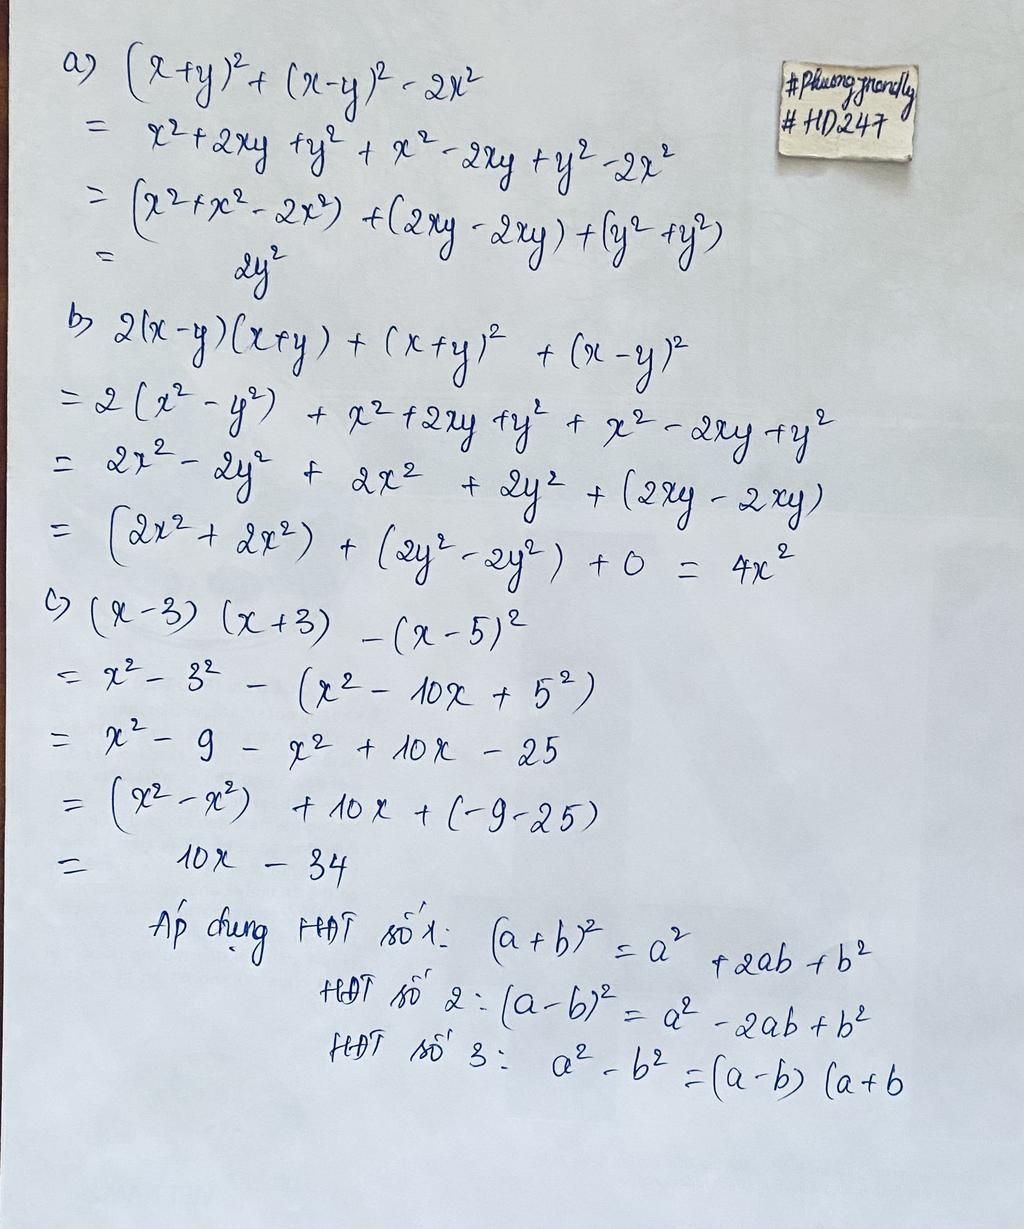 a) (x+y)² + (x-y)² - 2x²
= x² + 2xy + y² + x² - 2xy + y² - 2x²
= (x² + x² - 2x²) + (2xy - 2xy) + (y² + y²)
= 2y²
b) 2(x-y)(x+y) + (x+y)² + (x-y)²
= 2(x² - y²) + x² + 2xy + y² + x² - 2xy + y²
= 2x² - 2y² + 2x² + 2y² + (2xy - 2xy)
= (2x² + 2x²) + (2y² - 2y²) + 0 = 4x²
c) (x-3) (x+3) - (x-5)²
= x² - 3² - (x² - 10x + 5²)
= x² - 9 - x² + 10x - 25
= (x² - x²) + 10x + (-9-25)
= 10x - 34
Áp dụng HĐT số 1: (a+b)² = a² + 2ab + b²
HĐT số 2: (a-b)² = a² - 2ab + b²
HĐT số 3: a² - b² = (a-b) (a+b
# HD247